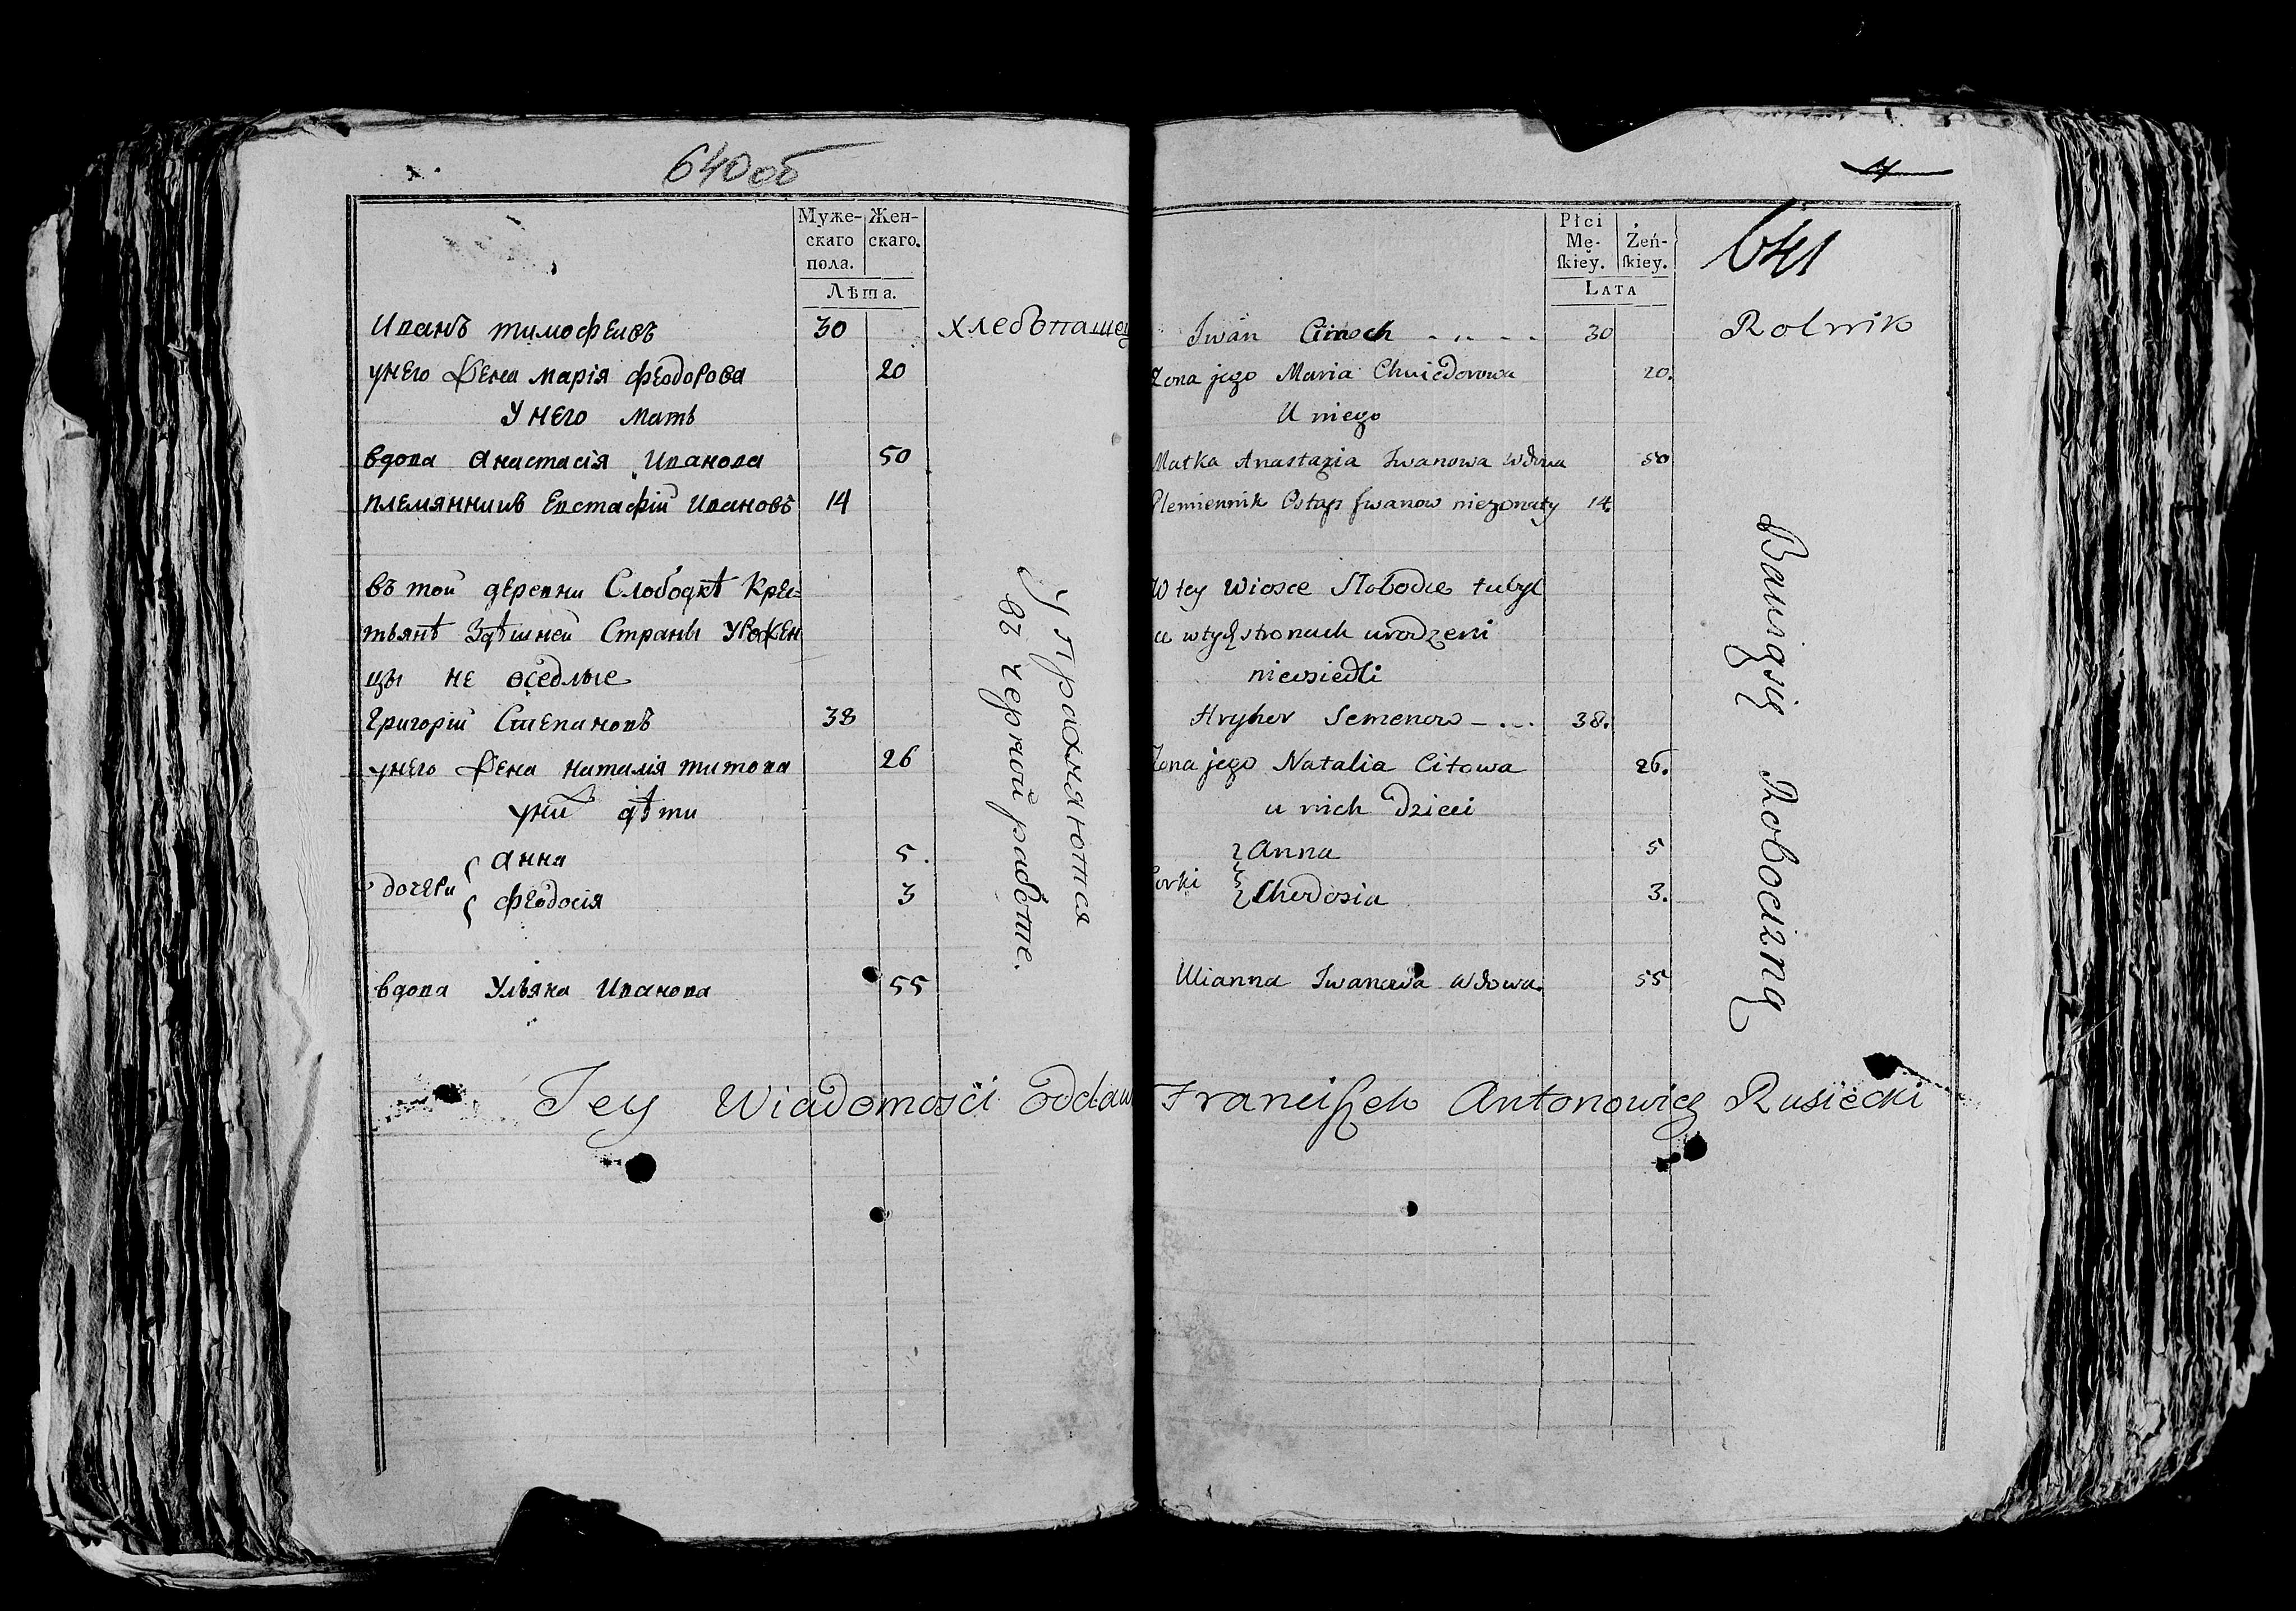 640об
Муже- Жен-
скаго скаго.
пола.
Лѣта.
Иванъ тимофеивъ 30 хлебъпашец
унего жена мария феодорова 20
У него мать
вдова Анастасія Иванова 50
племянникъ Евстафій Ивановъ 14
въ той деревни Слободкѣ Крес=
тьянѣ Здѣшней Страны урожен
цы не оседлые
Григорій Степановъ 38
унего жена наталія титова 26
уних дѣти
дочери Анна 5.
феодосія 3
вдова Ульяна Иванова 55
Упражняются
въ черной работе.
Tey Wiadomości Oddaw
641
Płci
Mę- Żeń-
ſkiey. ſkiey.
LATA
Iwan Cimoch 30 Rolnik
Zona jego Maria Chwiedorowa 20.
U niego
Matka Anastazia Iwanowa wdowa 50
Plemiennik Ostap Iwanow niezonaty 14.
W tey Wiosce Słobodce tubyl
cu w tych stronach urodzeni
nieosiedli
Hryhor Semenow 38.
Zona jego Natalia Citowa 26.
u nich dzieci
Corki Anna 5
Chwedosia 3.
Ulianna Iwanowa wdowa. 55
Bawiąsię Robocizną
Franciszek Antonowicz Rusiecki